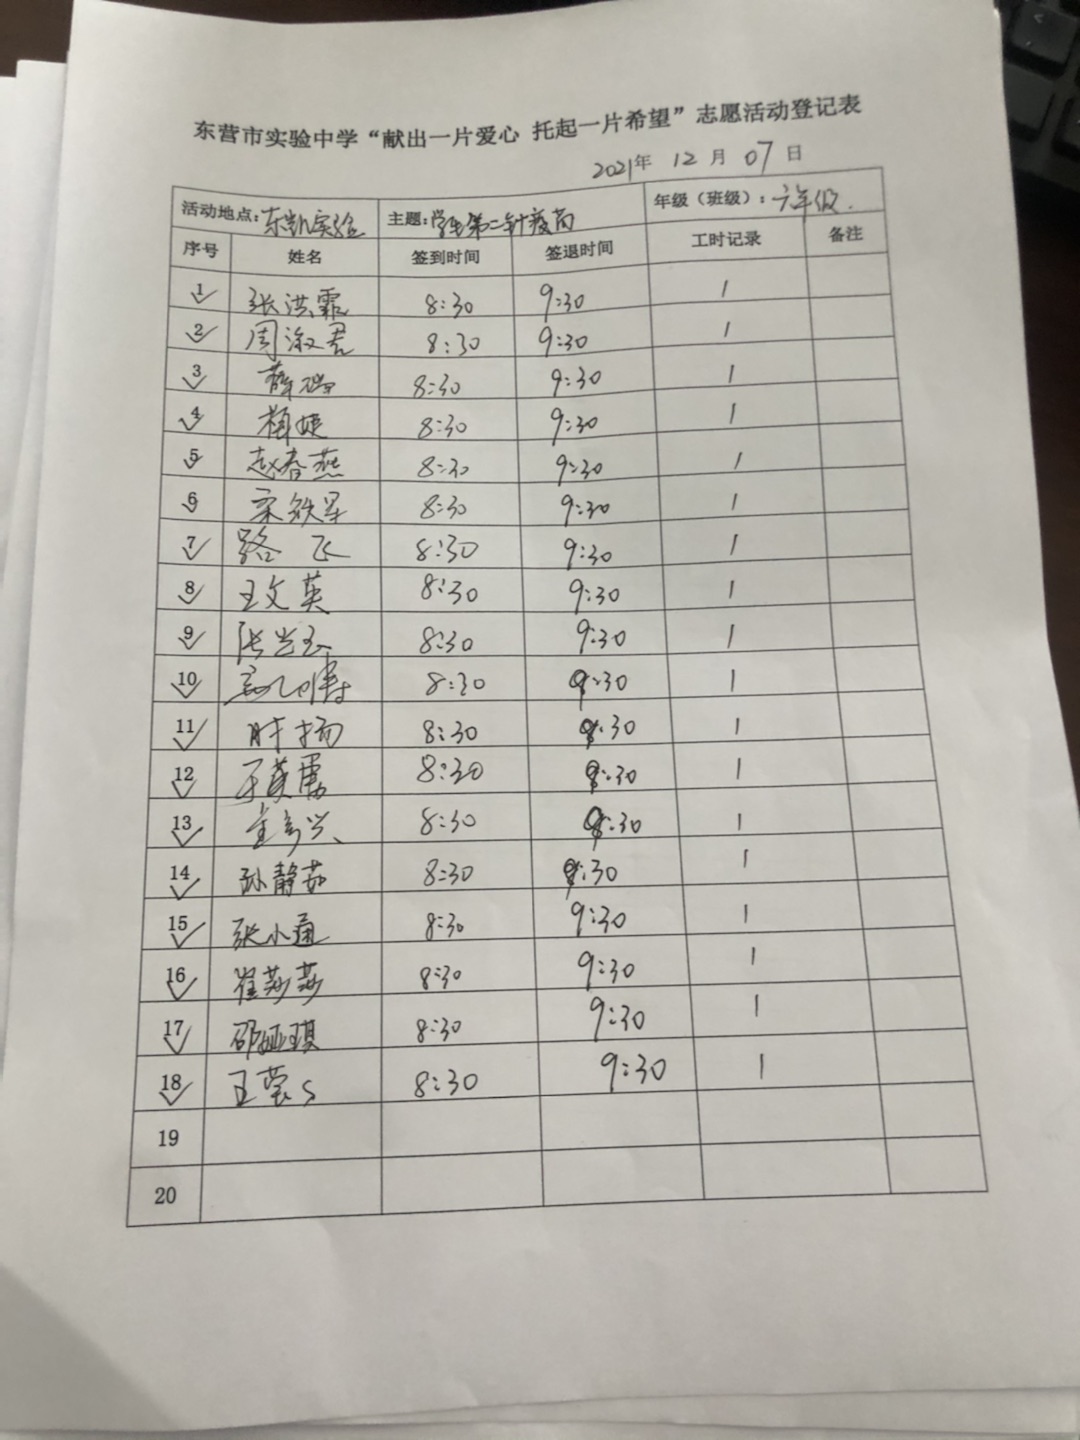 东营市实验中学“献出一片爱心 托起一片希望”志愿活动登记表
2021年 12 月 07 日
活动地点:东凯实验 主题:学生第二针疫苗 年级（班级）:六年级.
序号 姓名 签到时间 签退时间 工时记录 备注
1 张洪霏 8:30 9:30 1
2 周淑君 8:30 9:30 1
3 薛瑞 8:30 9:30 1
4 婕 8:30 9:30 1
5 赵春燕 8:30 9:30 1
6 宋铁军 8:30 9:30 1
7 路飞 8:30 9:30 1
8 王文英 8:30 9:30 1
9 张 玉 8:30 9:30 1
10 8:30 9:30 1
11 时扬 8:30 9:30 1
12 英 8:30 9:30 1
13 8:30 9:30 1
14 孙静茹 8:30 9:30 1
15 张小通 8:30 9:30 1
16 崔莎莎 8:30 9:30 1
17 邵娅琪 8:30 9:30 1
18 王莹s 8:30 9:30 1
19
20